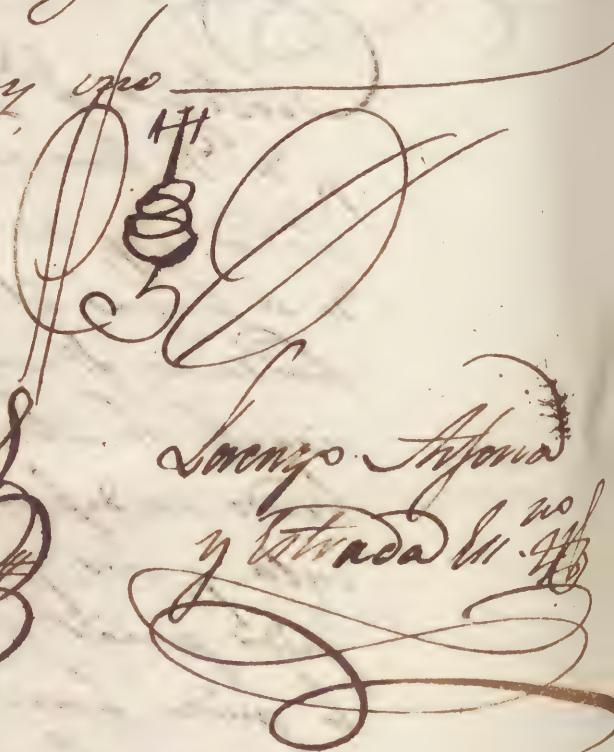 y uno
Lorenzo Alfonso
y Estrada Ess.no